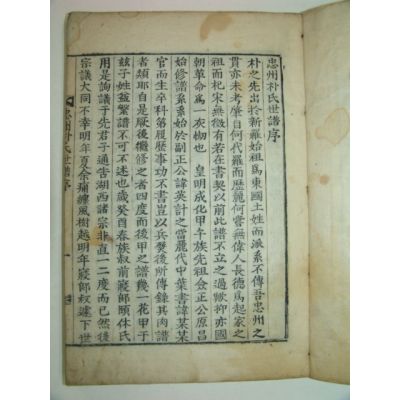 忠州朴氏世譜序
朴之先出於新羅始祖爲東國土姓而派系不傳吾忠州之
貫亦未考肇自何代羅而歷麗何嘗無偉人長德爲起家之
祖而杞宋無徵有若在書契以前此譜不立之過歟抑亦國
朝革命爲一灰劫也 皇明成化甲午族先祖僉正公原昌
始修譜系系始於副正公諱英計之當麗代中葉書諱某某
官而生卒科第履歷事功不書豈以兵燹後所傳錄其肉譜
者類耶自是厥後繼修之者四度而後甲之譜幾一花甲于
玆子姓益繁譜不可不述也歲癸酉春族叔前寢郎頣休氏
用是詢議于先君子通告湖西諸宗非直一二度而已然後
宗議大同不幸明年夏余痛纏風樹越明年寢郎叔遽下世
忠州朴氏世譜序
一